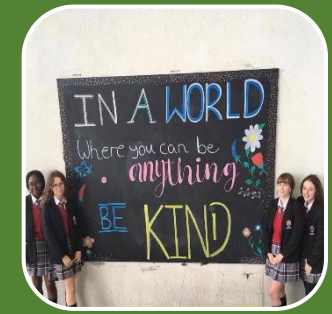 IN A WORLD
Where you can be
anything
BE KIND